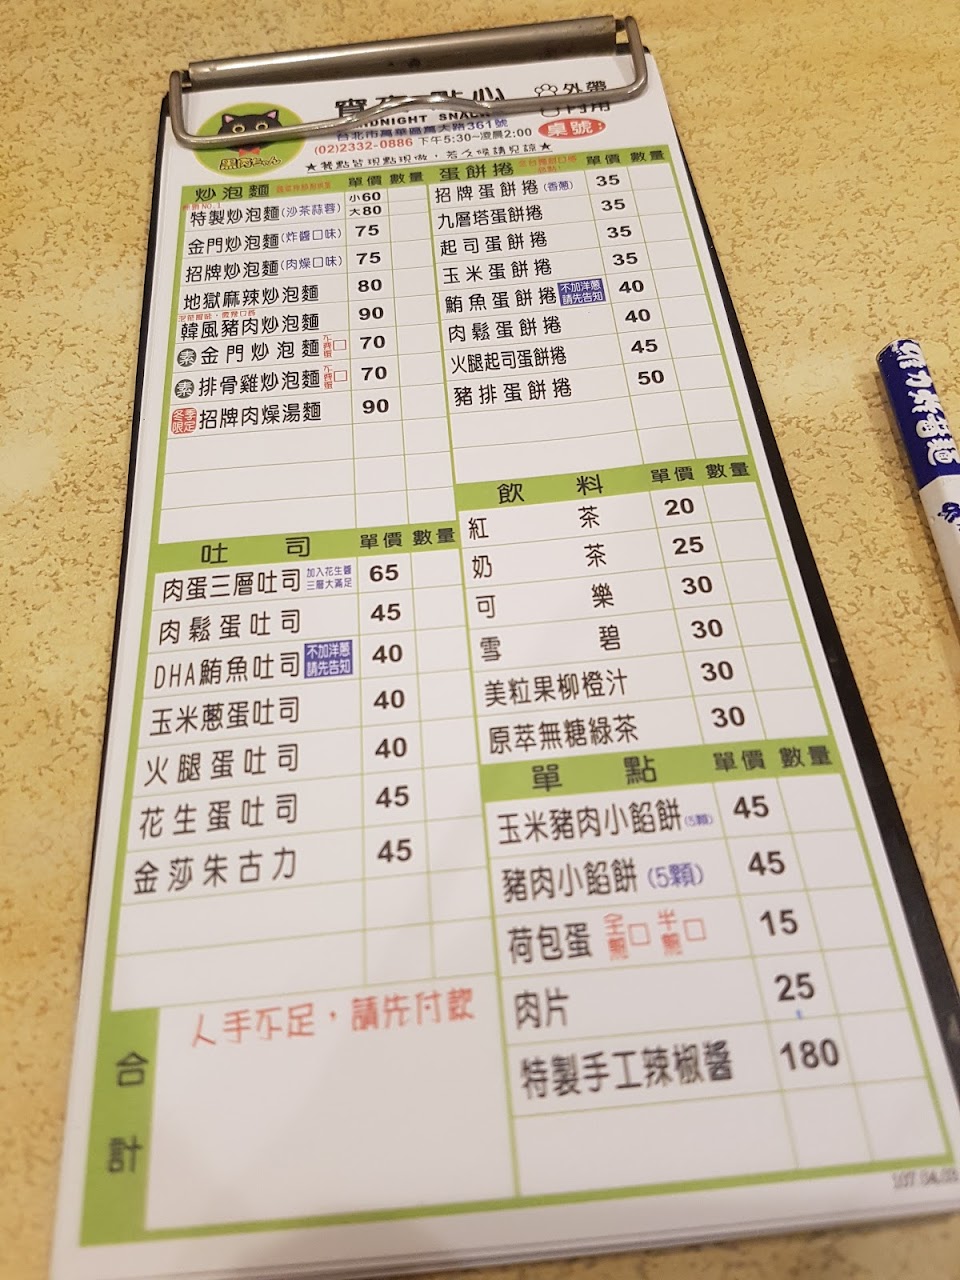 點心
外帶
MIDNIGHT SNACK
內用
台北市萬華區萬大路361號
(02)2332-0886 下午5:30~凌晨2:00
桌號:
★餐點皆現點現做，若久候請見諒★
炒泡麵 單價 數量
特製炒泡麵(沙茶蒜蓉) 小60 大80
金門炒泡麵(炸醬口味) 75
招牌炒泡麵(肉燥口味) 75
地獄麻辣炒泡麵 80
韓風豬肉炒泡麵 90
素 金門炒泡麵 70
素 排骨雞炒泡麵 70
冬季限定 招牌肉燥湯麵 90
蛋餅捲 單價 數量
招牌蛋餅捲(香蔥) 35
九層塔蛋餅捲 35
起司蛋餅捲 35
玉米蛋餅捲 35
鮪魚蛋餅捲 不加洋蔥請先告知 40
肉鬆蛋餅捲 40
火腿起司蛋餅捲 45
豬排蛋餅捲 50
吐司 單價 數量
肉蛋三層吐司 加入花生醬三層大滿足 65
肉鬆蛋吐司 45
DHA鮪魚吐司 不加洋蔥請先告知 40
玉米蔥蛋吐司 40
火腿蛋吐司 40
花生蛋吐司 45
金莎朱古力 45
飲料 單價 數量
紅茶 20
奶茶 25
可樂 30
雪碧 30
美粒果柳橙汁 30
原萃無糖綠茶 30
單點 單價 數量
玉米豬肉小餡餅(5顆) 45
豬肉小餡餅(5顆) 45
荷包蛋 全熟□ 半熟□ 15
肉片 25
特製手工辣椒醬 180
人手不足，請先付款
合計